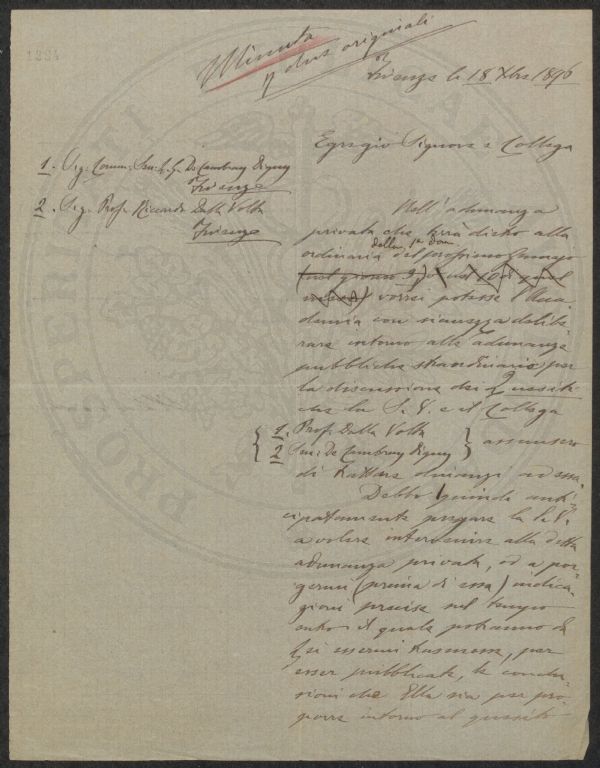 1234
Minuta
p due originali
Firenze li 18 Xbre 1896
Egregio Signore e Collega
1. Sig. Comm. Sen. L. G. De Cambray Digny
Firenze
2. Sig. Prof. Riccardo Dalla Volta
Firenze
Nell'adunanza
privata che terrà dietro alla
ordinaria della 1a Dom.
del prossimo Gennajo
vorrei potesse l'Acca-
demia con sicurezza delibe-
rare intorno alle adunanze
pubbliche straordinarie per
la discussione dei Quesiti
che la S. V. e il Collega
1. Prof. Dalla Volta
2 Sen. De Cambray Digny
assunsero
di trattare dinanzi ad essa.
Debbo quindi anti-
cipatamente pregare la S. V.
a volere intervenire alla detta
adunanza privata, od a por-
germi (prima di essa) indica-
zioni precise sul tempo
entro il quale potranno da
Lei essermi trasmesse, per
esser pubblicate, le conclu-
sioni che Ella sia per pro-
porre intorno al quesito